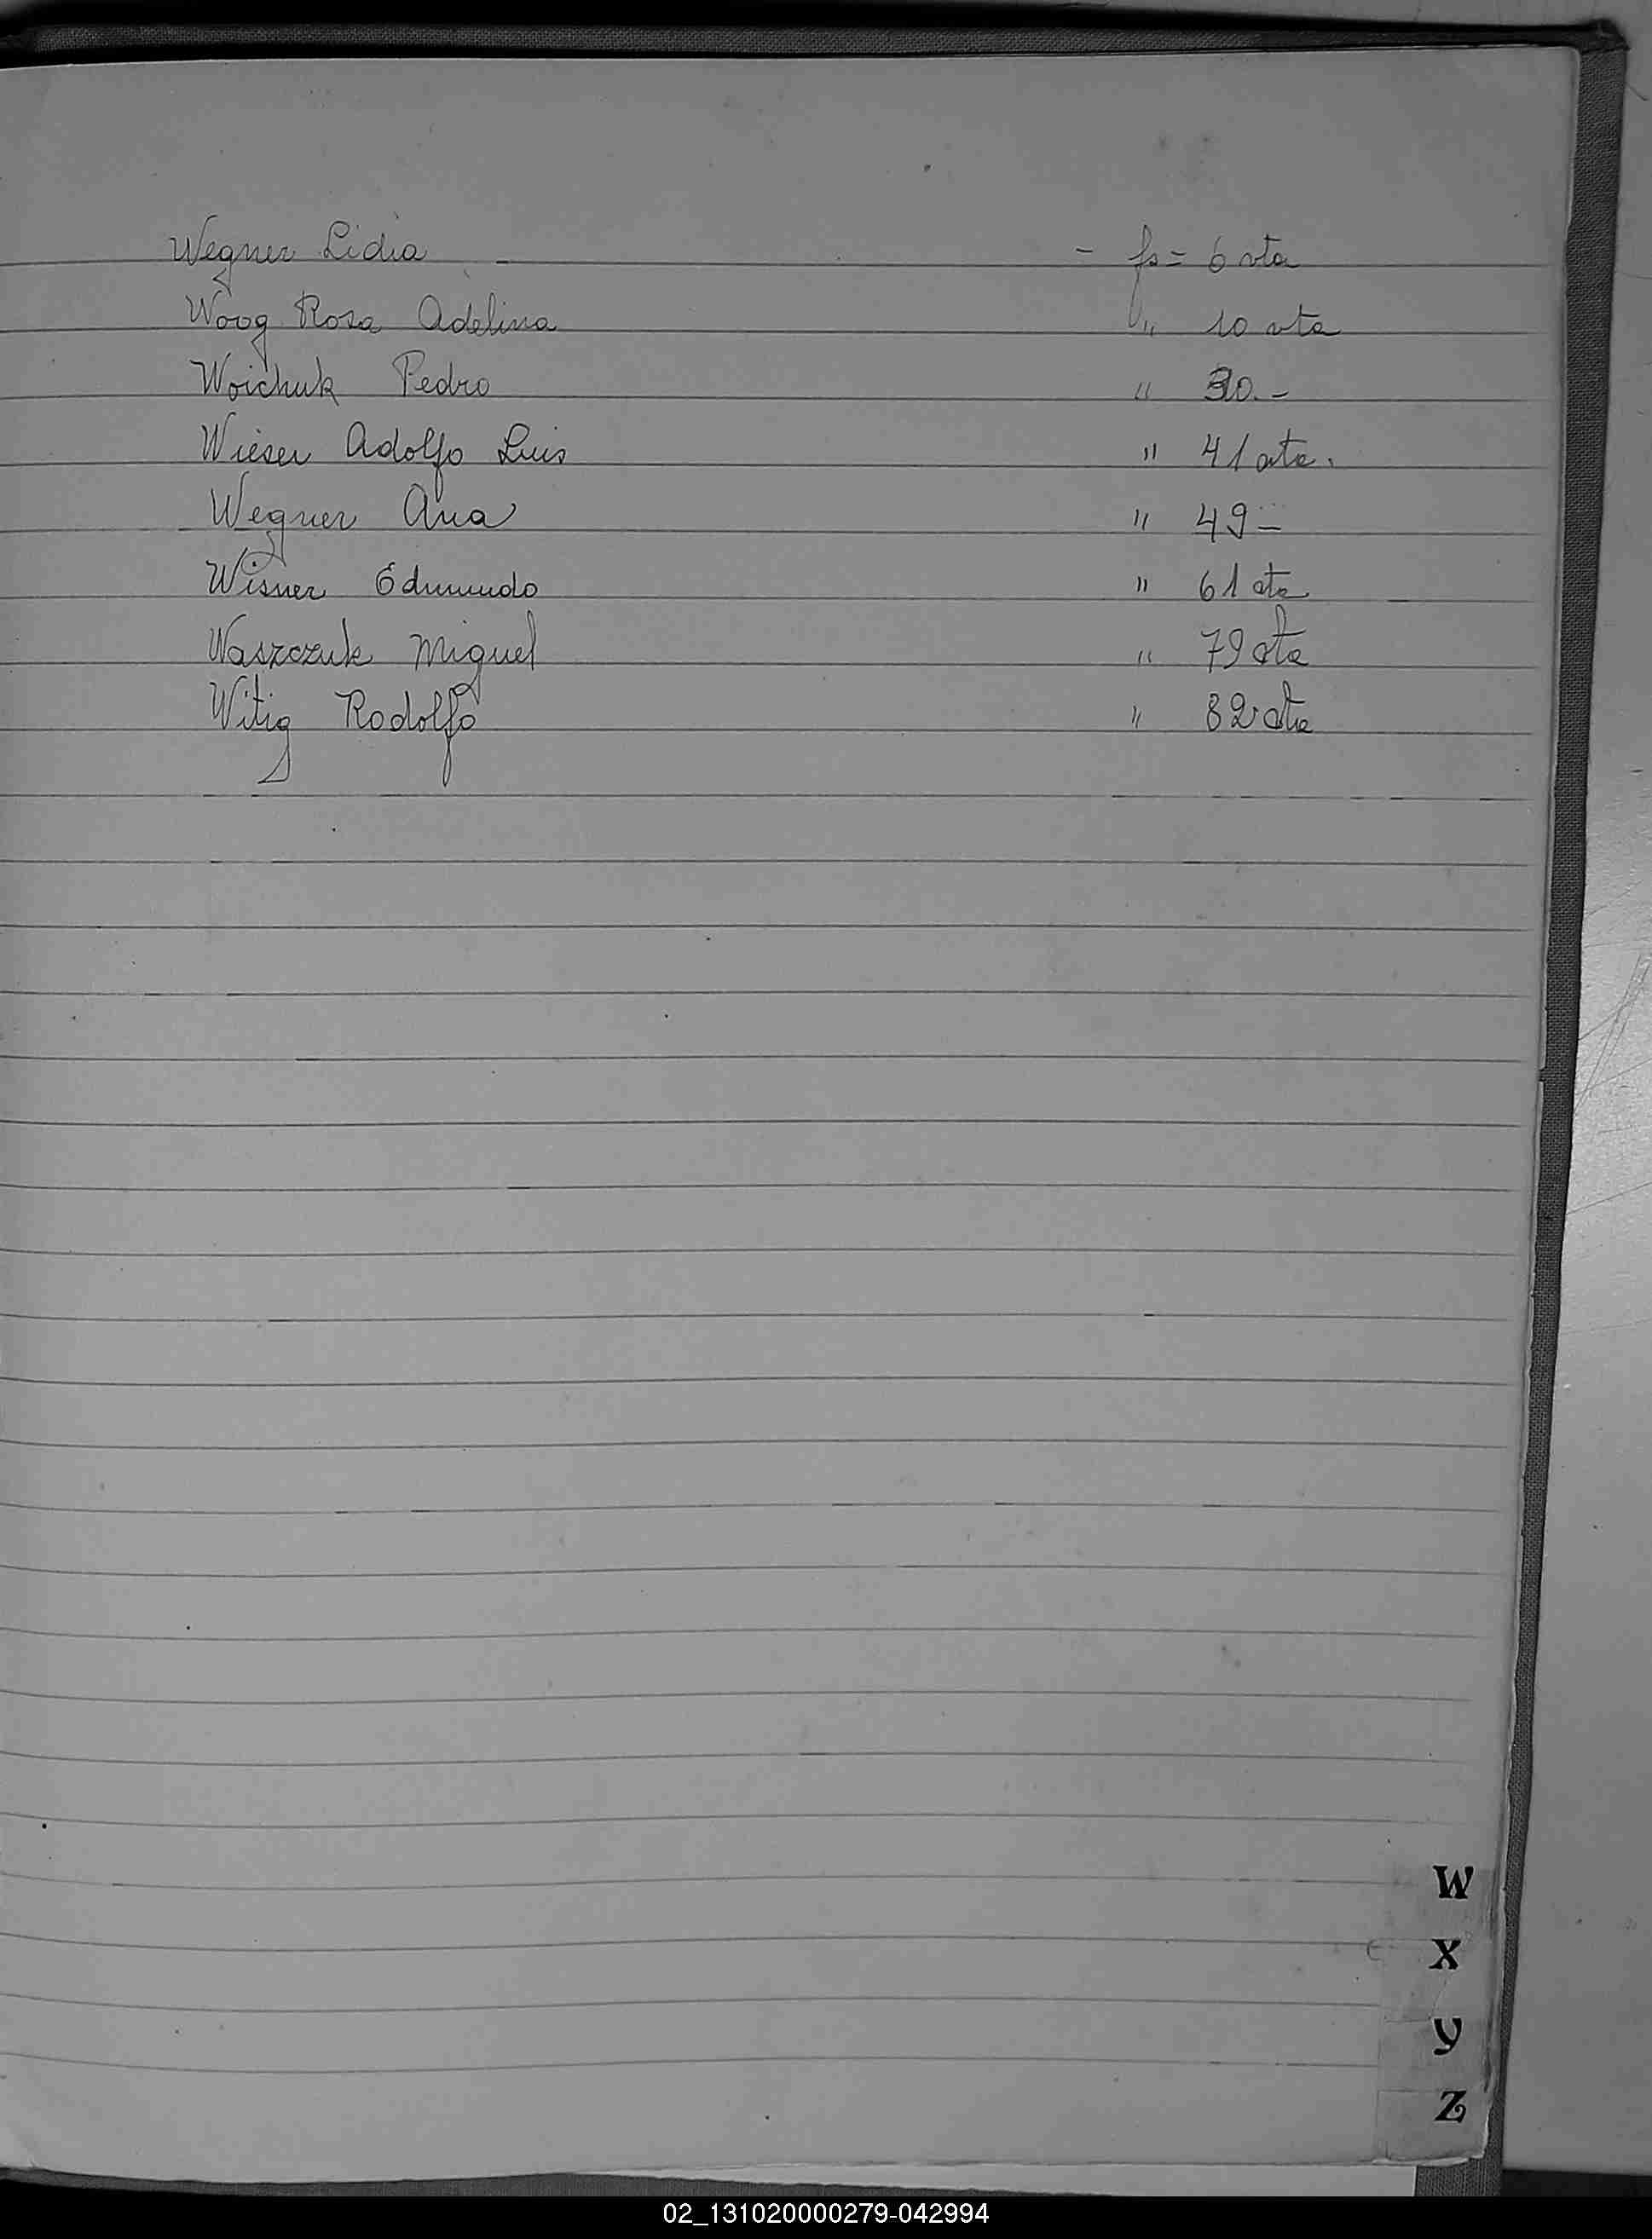 Wegner Lidia - fs = 6 vta
Woog Rosa Adelina " 10 vta
Woichuk Pedro " 30.-
Wieser Adolfo Luis " 41 vta.
Wegner Ana " 49-
Wisner Edmundo " 61 vta
Waszczuk Miguel " 79 vta
Witig Rodolfo " 82 vta
W
X
Y
Z
02_131020000279-042994